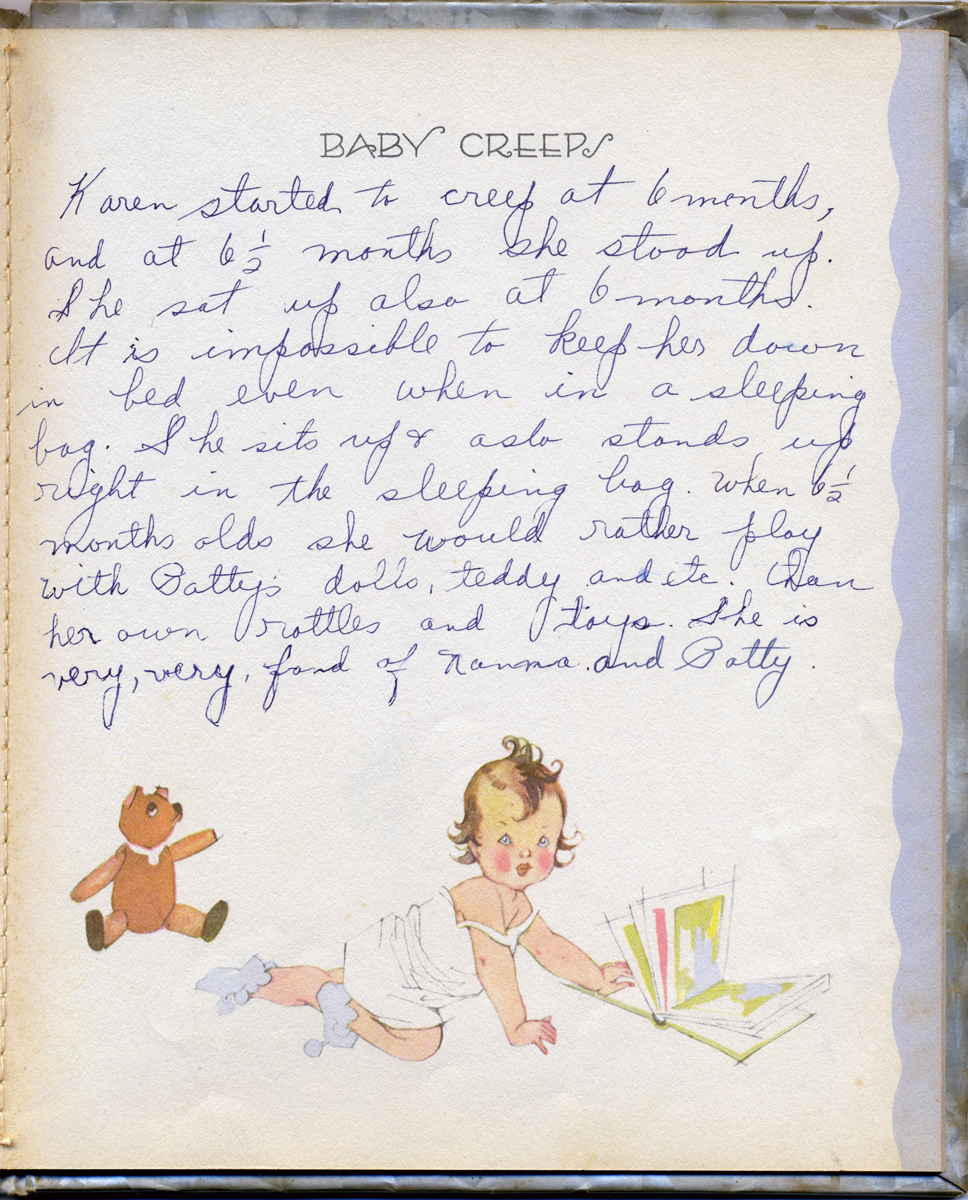 BABY CREEPS
Karen started to creep at 6 months,
and at 6 1/2 months she stood up.
She sat up also at 6 months.
It is impossible to keep her down
in bed even when in a sleeping
bag. She sits up & aslo stands up
right in the sleeping bag. When 6 1/2
months olds she would rather play
with Patty's dolls, teddy and etc. than
her own rattles and toys. She is
very, very, fond of Nanma and Patty.